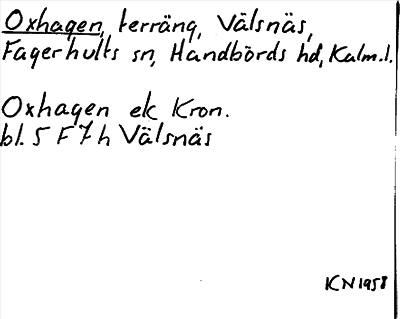 Oxhagen, terräng, Välsnäs,
Fagerhults sn, Handbörds hd, Kalm.l.
Oxhagen ek Kron.
bl. 5 F 7 h Välsnäs
KN 1958